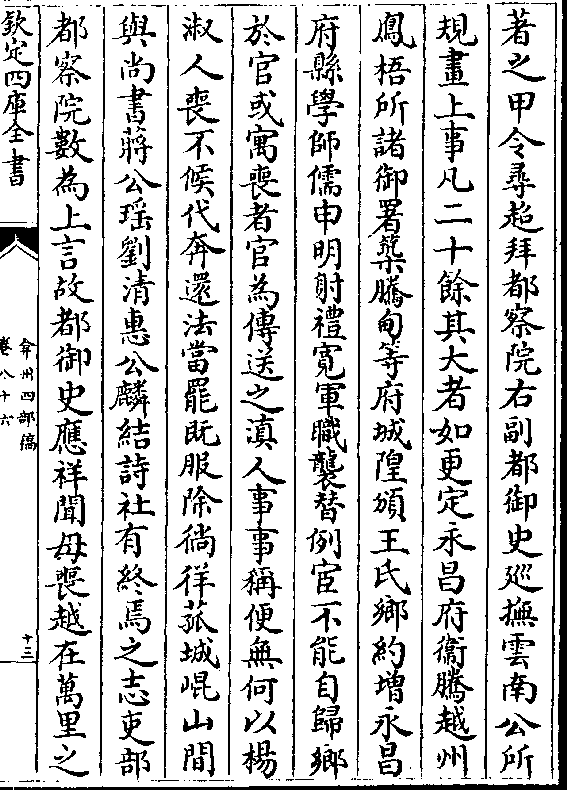 著之甲令尋超拜都察院右副都御史廵撫雲南公所
規畫上事凡二十餘其大者如更定永昌府衞騰越州
鳳梧所諸御署築騰甸等府城隍頒王氏鄉約增永昌
府縣學師儒申明射禮寛軍職襲替例宦不能自歸鄉
於官或寓喪者官為傳送之滇人事事稱便無何以楊
淑人喪不候代奔還法當罷既服除徜徉菰城崐山間
與尚書蔣公瑶劉清惠公麟結詩社有終焉之志吏部
都察院數為上言故都御史應祥聞母喪越在萬里之
欽定四庫全書
弇州四部稿
卷八十六
十三